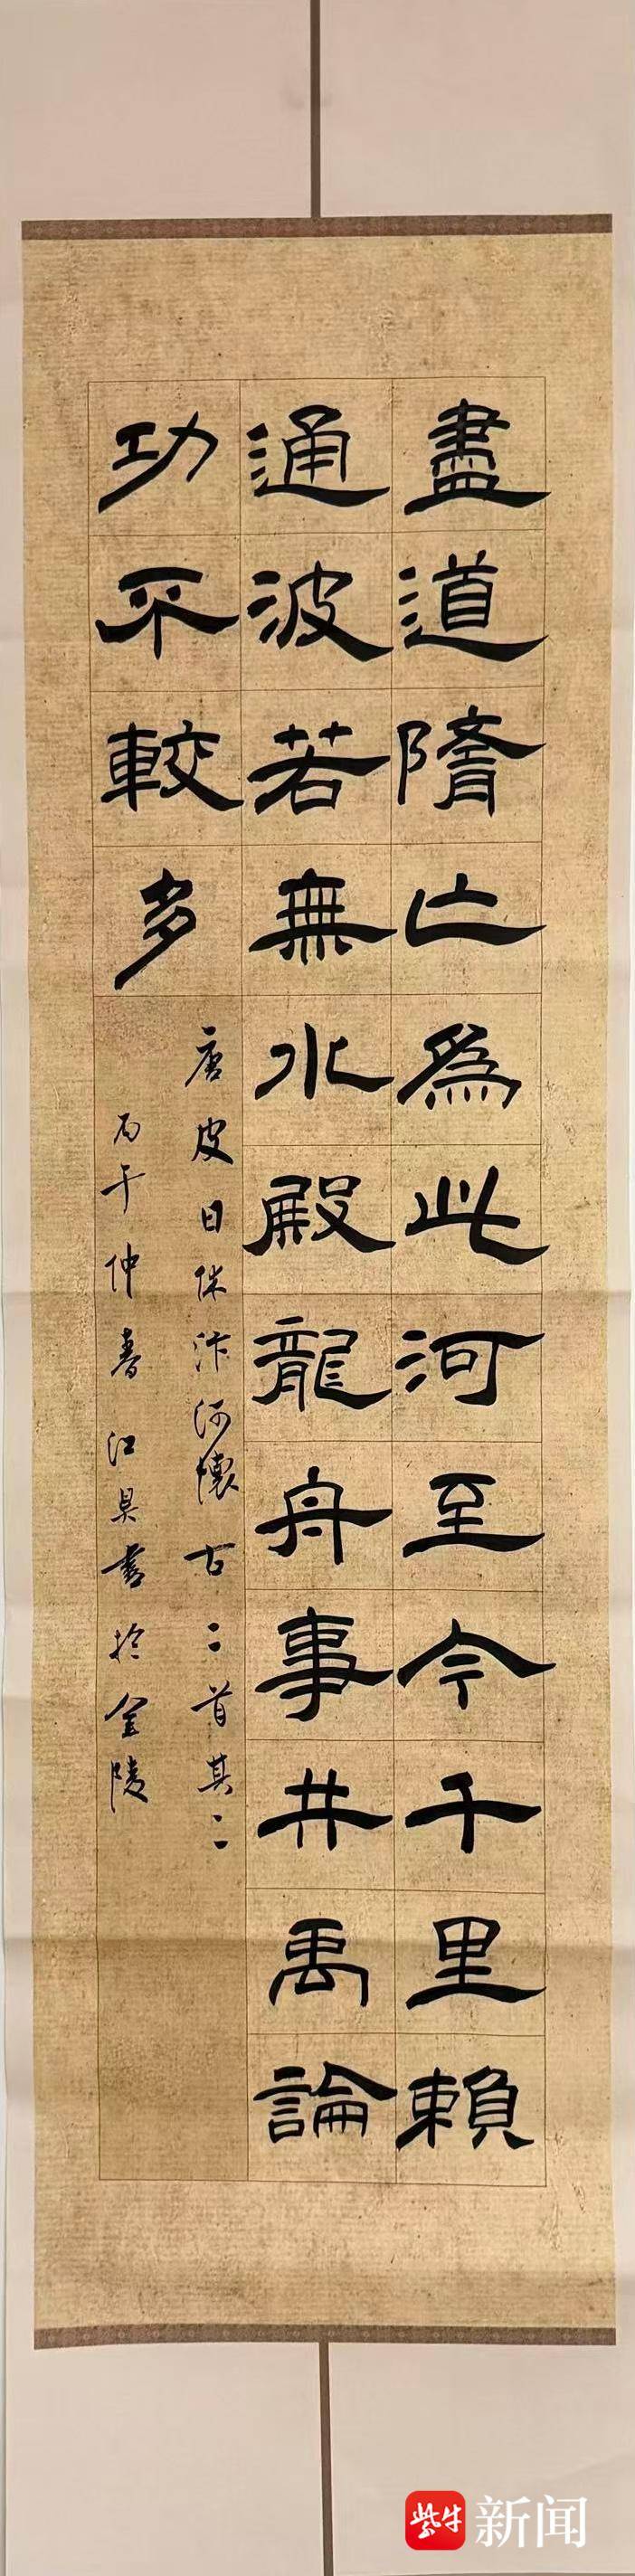 盡道隋亡為此河至今千里賴
通波若無水殿龍舟事共禹論
功不較多
唐皮日休汴河懷古二首其二
丙午仲春江書於金陵
紫牛新闻